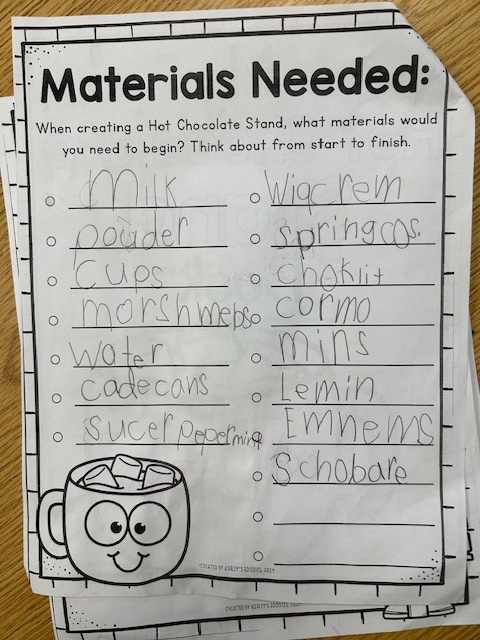 Materials Needed:
When creating a Hot Chocolate Stand, what materials would
you need to begin? Think about from start to finish.
Milk
powder
cups
morshmebs
Water
cadecans
sucer pepermint
Wiqcrem
springcos.
choklit
cormo
mins
Lemin
Emnems
Schobare
CREATED BY ASHLEY'S GOODIES, 2024
CREATED BY ASHLEY'S GOODIES, 2024